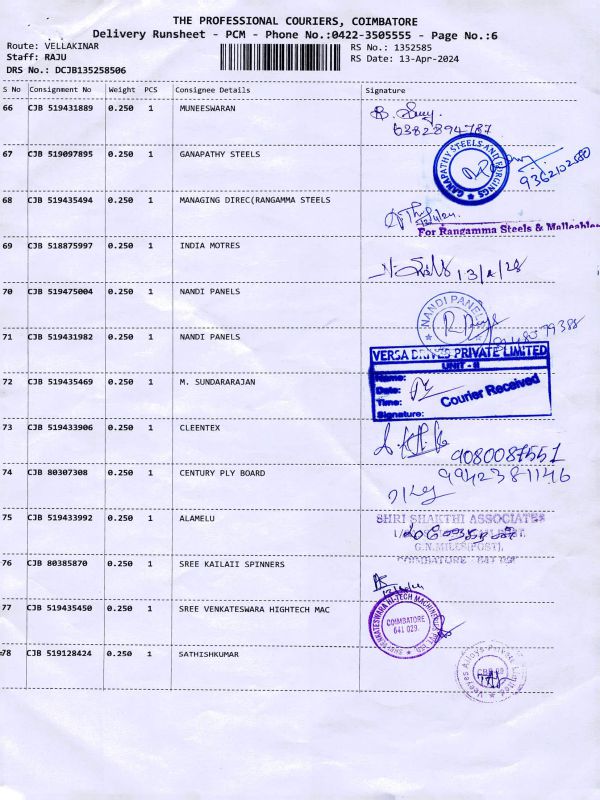 THE PROFESSIONAL COURIERS, COIMBATORE
Delivery Runsheet - PCM - Phone No.:0422-3505555 - Page No.:6
Route: VELLAKINAR
RS No.: 1352585
Staff: RAJU
RS Date: 13-Apr-2024
DRS No.: DCJB135258506
S No Consignment No Weight PCS Consignee Details Signature
66 CJB 519431889 0.250 1 MUNEESWARAN
6382894787
67 CJB 519097895 0.250 1 GANAPATHY STEELS
GANAPATHY STEELS AND FORGINGS
9362102580
68 CJB 519435494 0.250 1 MANAGING DIREC(RANGAMMA STEELS
For Rangamma Steels & Malleables
69 CJB 518875997 0.250 1 INDIA MOTRES
13/4/24
70 CJB 519475004 0.250 1 NANDI PANELS
NANDI PANELS
71 CJB 519431982 0.250 1 NANDI PANELS
VERSA DRIVES PRIVATE LIMITED
UNIT - II
Name:
Date:
Time:
Signature:
Courier Received
72 CJB 519435469 0.250 1 M. SUNDARARAJAN
73 CJB 519433906 0.250 1 CLEENTEX
9080087551
74 CJB 80307308 0.250 1 CENTURY PLY BOARD
9942381146
75 CJB 519433992 0.250 1 ALAMELU
SHRI SHAKTHI ASSOCIATES
G.N.MILLS(POST),
COIMBATORE - 641 029
76 CJB 80385870 0.250 1 SREE KAILAII SPINNERS
77 CJB 519435450 0.250 1 SREE VENKATESWARA HIGHTECH MAC
COIMBATORE
641 029.
78 CJB 519128424 0.250 1 SATHISHKUMAR